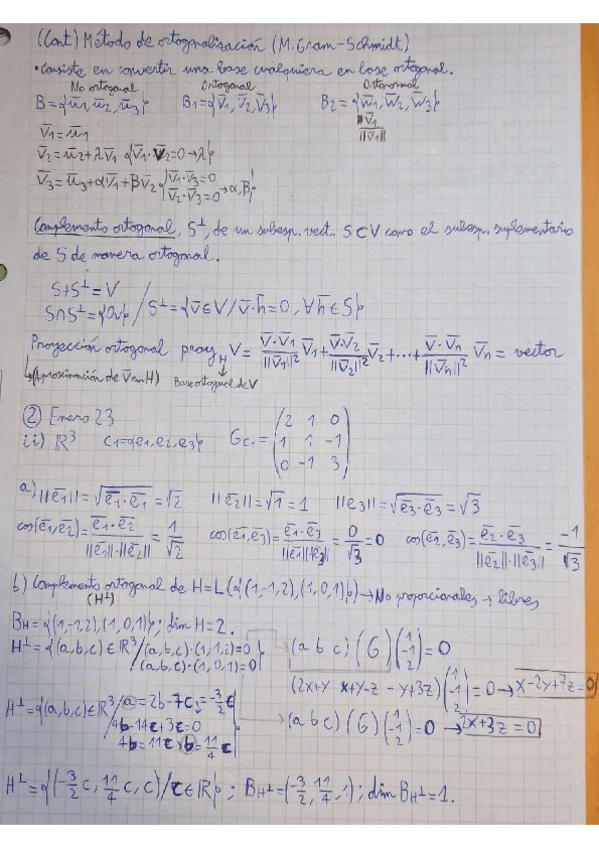 (Cont) Método de ortogonalización (M.Gram-Schmidt)
• Consiste en convertir una base cualquiera en base ortogonal.
No ortogonal Ortogonal Ortonormal
B={ū1, ū2, ū3} B1={v̄1, v̄2, v̄3} B2={w̄1, w̄2, w̄3}
v̄1/||v̄1||
v̄1=ū1
v̄2=ū2+λv̄1 {v̄1·v̄2=0→λ}
v̄3=ū3+αv̄1+Bv̄2 {v̄1·v̄3=0 v̄2·v̄3=0→α,B}
Complemento ortogonal, S⊥, de un subesp. vect. S⊂V como el subesp. suplementario
de S de manera ortogonal.
S+S⊥=V
S∩S⊥={0v} / S⊥={v̄∈V/v̄·h̄=0, ∀h̄∈S}
Proyección ortogonal proy_H V= (v̄·v̄1)/||v̄1||² v̄1+(v̄·v̄2)/||v̄2||² v̄2+...+(v̄·v̄n)/||v̄n||² v̄n= vector
↳(Aproximación de v̄ en H) Base ortogonal de V
② Enero 23
ii) ℝ³ C1={e1,e2,e3} Gc1=(2 1 0
1 1 -1
0 -1 3)
a) ||ē1||=√(ē1·ē1)=√2 ||ē2||=√1=1 ||e3||=√(ē3·ē3)=√3
cos(ē1,ē2)=(ē1·ē2)/(||ē1||·||ē2||)=1/√2 cos(ē1,ē3)=(ē1·ē3)/(||ē1||·||ē3||)=0/√3=0 cos(ē2,ē3)=(ē2·ē3)/(||ē2||·||ē3||)=-1/√3
b) Complemento ortogonal de H=L({(1,-1,2),(1,0,1)})→No proporcionales→libres
(H⊥)
BH={(1,-1,2),(1,0,1)}; dim H=2.
H⊥={(a,b,c)∈ℝ³/(a,b,c)·(1,-1,2)=0
(a,b,c)·(1,0,1)=0}
→(a b c)(G)(1 -1 2)=0
(2x+y x+y-z -y+3z)(1 -1 2)=0→x-2y+7z=0
→(a b c)(G)(1 -1 2)=0→2x+3z=0
H⊥={(a,b,c)∈ℝ³/a=2b-7c=-3/2c
4b-14c+3c=0
4b=11c→b=11/4c}
H⊥={(-3/2c, 11/4c, c)/c∈ℝ}; BH⊥=(-3/2, 11/4, 1); dim BH⊥=1.